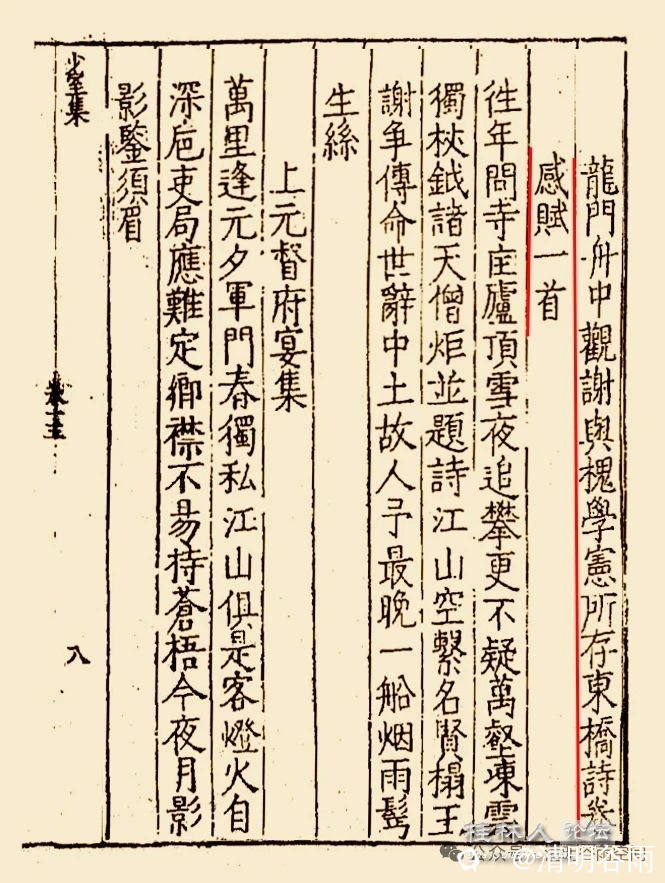 龍門舟中觀謝與槐學憲所存東橋詩卷
感賦一首
往年問寺庄廬頂雪夜追攀更不疑萬壑凍雲
獨杖鉞諸天僧炬並題詩江山空繫名賢榻王
謝争傳命世辭中土故人予最晚一船烟雨髩
生絲
上元督府宴集
萬里逢元夕軍門春獨私江山俱是客燈火自
深巵吏局應難定卿襟不易持蒼梧今夜月影
影鑒須眉
少室集
卷
八
桂林人论坛
公众号
@清明谷雨